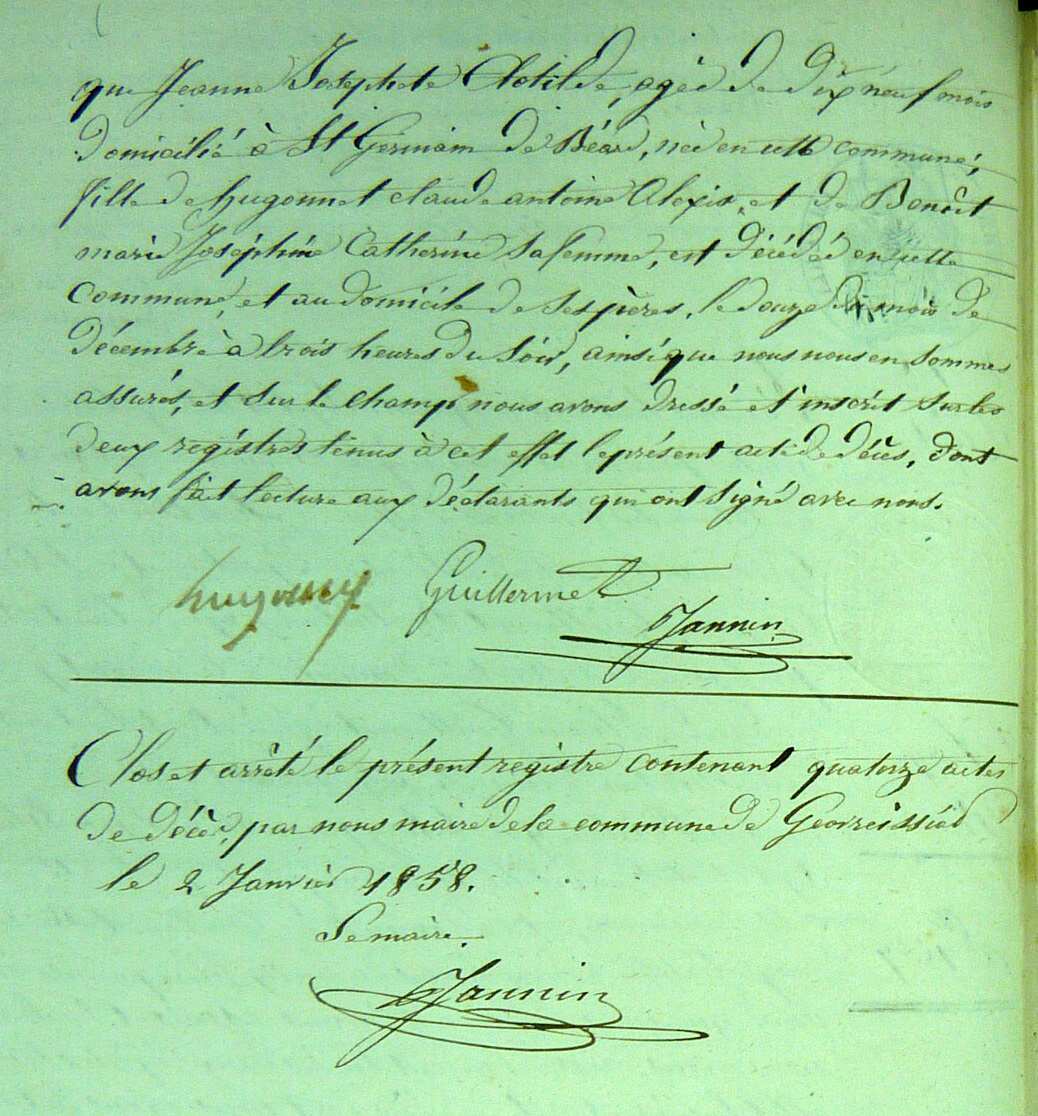 que Jeanne Josephete Clotilde, agée de dix neuf mois
domicilié à St Germain de Béard, née en cette commune,
fille de hugonnet claude antoine Alexis, et de Benoît
marie Joséphine Catherine sa femme, est décédée en cette
commune, et au domicile de ses pères, le douze du mois de
décembre à trois heures du soir, ainsi que nous nous en sommes
assurés, et sur le champ nous avons dressé et inscrit sur les
deux registres tenus à cet effet le présent acte de décès, dont
avons fait lecture aux déclarants qui ont signé avec nous.
hugonnet Guillermet
Jannin
Clos et arrêté le présent registre contenant quatorze actes
de décès, par nous maire de la commune de Geovreissiad
le 2 Janvier 1858.
Le maire.
Jannin